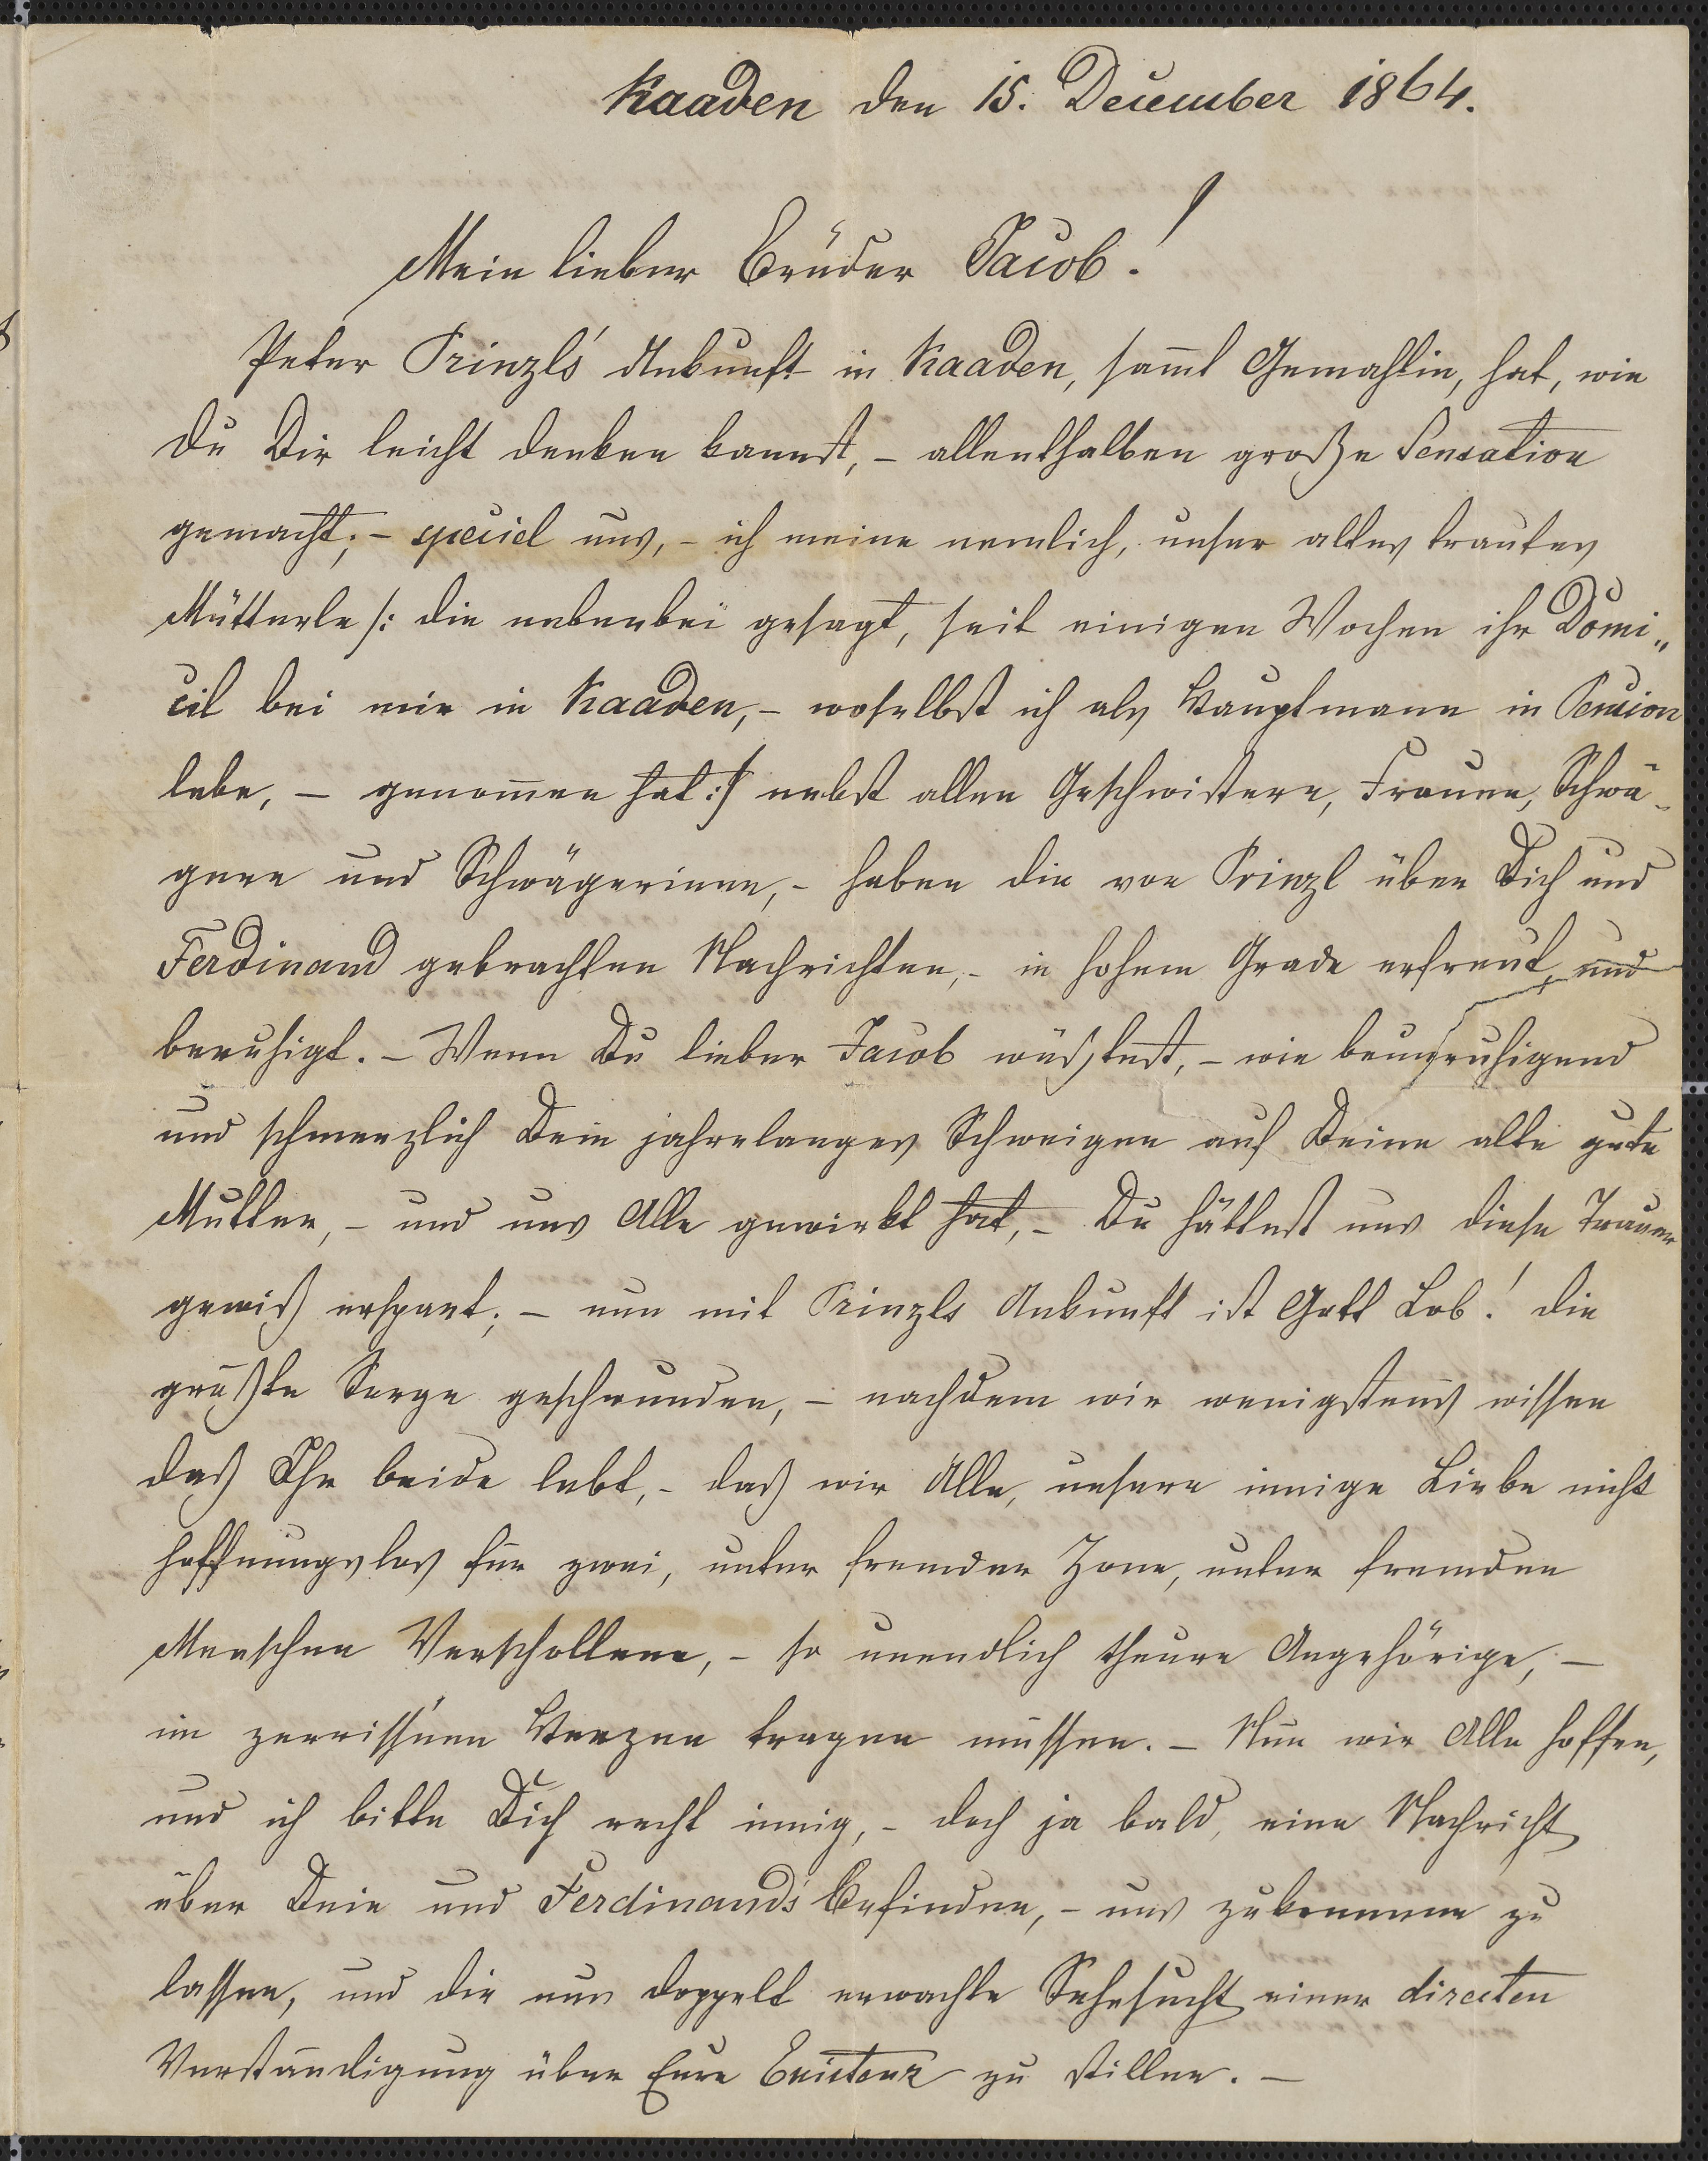 Kaaden den 15. December 1864.
Mein lieber Bruder Jacob!
Peter Prinzls' Ankunft in Kaaden, sam̄t Gemahlin, hat, wie
Du Dir leicht denken kannst, – allenthalben große Sensation
gemacht; – speciel uns, – ich meine nemlich, unser altes trautes
Mütterle /: die nebenbei gesagt, seit einigen Wochen ihr Domi„
cil bei mir in Kaaden, – woselbst ich als Hauptmann in Pension
lebe, – genom̄en hat :/ nebst allen Geschwistern, Frauen, Schwä-
gern und Schwägerinen, – haben die von Prinzl über Dich und
Ferdinand gebrachten Nachrichten, – in hohem Grade erfreut, und
beruhigt. – Wenn Du lieber Jacob wüßtest, – wie beunruhigend
und schmerzlich Dein jahrelanges Schweigen auf Deine alte gute
Mutter, – und uns Alle gewirkt hat, – Du hättest uns diese Trauer
gewiß erspart; – nun mit Prinzls Ankunft ist Gott Lob! die
größte Sorge geschwunden, – nachdem wir wenigstens wissen
daß Ihr beide lebt, – daß wir Alle, unsere innige Liebe nicht
hoffnungslos für zwei, unter fremder Zone, unter fremden
Menschen Verschollene, – so unendlich theure Angehörige, –
im zerriss'nen Herzen tragen müssen. – Nun wir Alle hoffen,
und ich bitte Dich recht innig, – doch ja bald, eine Nachricht
über Dein und Ferdinands' Befinden, – uns zukommen zu
lassen, und die nun doppelt erwachte Sehnsucht einer directen
Verständigung über Eure Existenz zu stillen. –